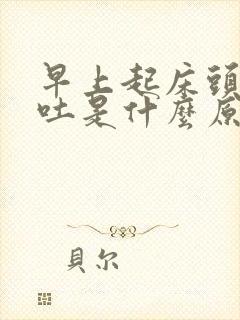 早上起床頭
吐是什麼原
貝尔